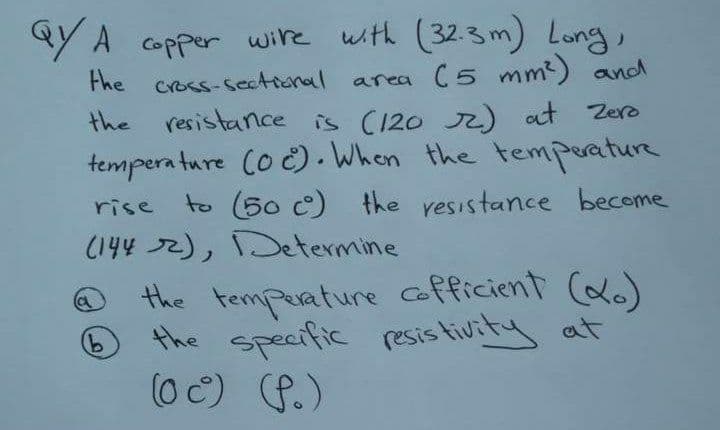 Q/ A copper wire with (32.3 m) Long,
the cross-sectional area (5 mm²) and
the resistance is (120 Ω) at Zero
temperature (0 c°). When the temperature
rise to (50 c°) the resistance become
(144 Ω), Determine
ⓐ the temperature cofficient (α₀)
ⓑ the specific resistivity at
(0 c°) (ρ₀)